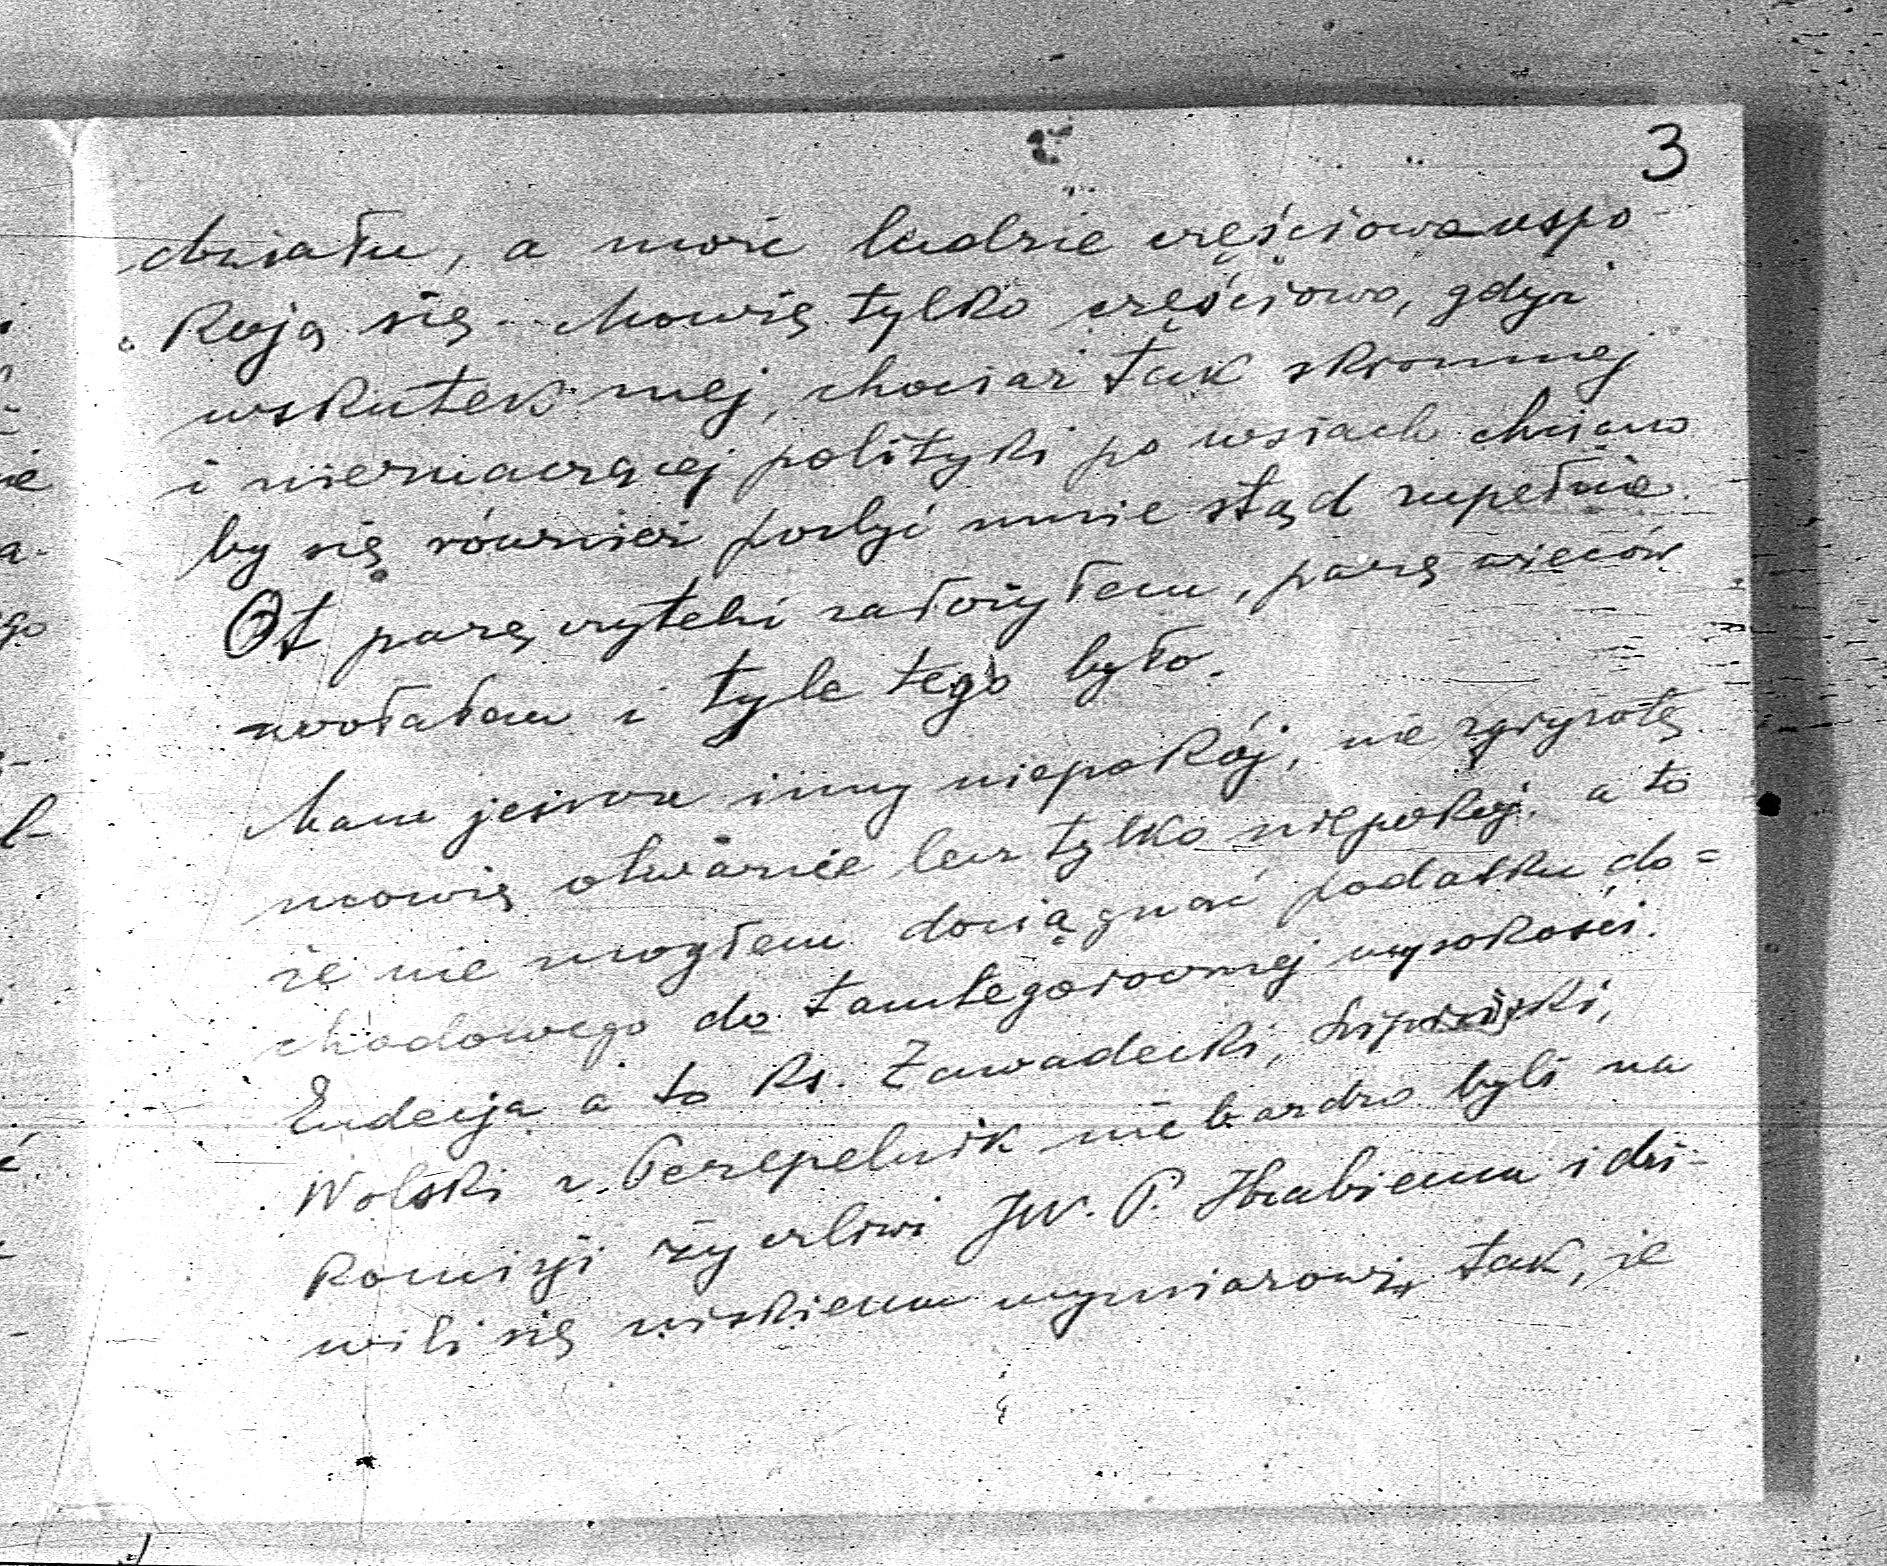 3
działu, a może ludzie częściowo uspo
koją się. Mówię tylko częściowo, gdyż
wskutek mej, chociaż tak skromnej
i nieznaczącej polityki po wsiach chciano
by się również pozbyć mnie stąd zupełnie.
Ot parę czytelń założyłem, parę wieców
zwołałem i tyle tego było.
Mam jeszcze inny niepokój, nie zgryzotę
mowię otwarcie lecz tylko niepokój, a to
że nie mogłem dociągnąć podatku do=
chodowego do tamtegorocznej wysokości.
Endecja a to ks. Zawadecki,
Wolski z Perepelnik nie bardzo byli na
komisji życzliwi JW. P. Hrabiemu i dzi-
wili się niskiemu wymiarowi, tak, że